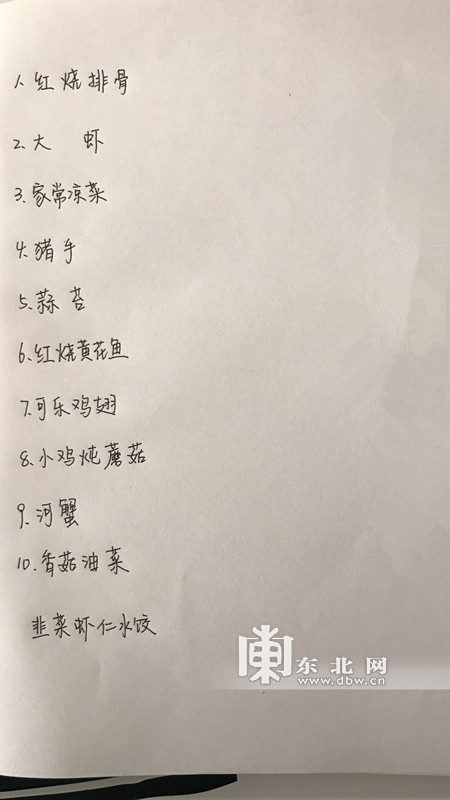 1、红烧排骨
2、大 虾
3、家常凉菜
4、猪手
5、蒜苔
6、红烧黄花鱼
7、可乐鸡翅
8、小鸡炖蘑菇
9、河蟹
10、香菇油菜
韭菜虾仁水饺
东北网
www.dbw.cn